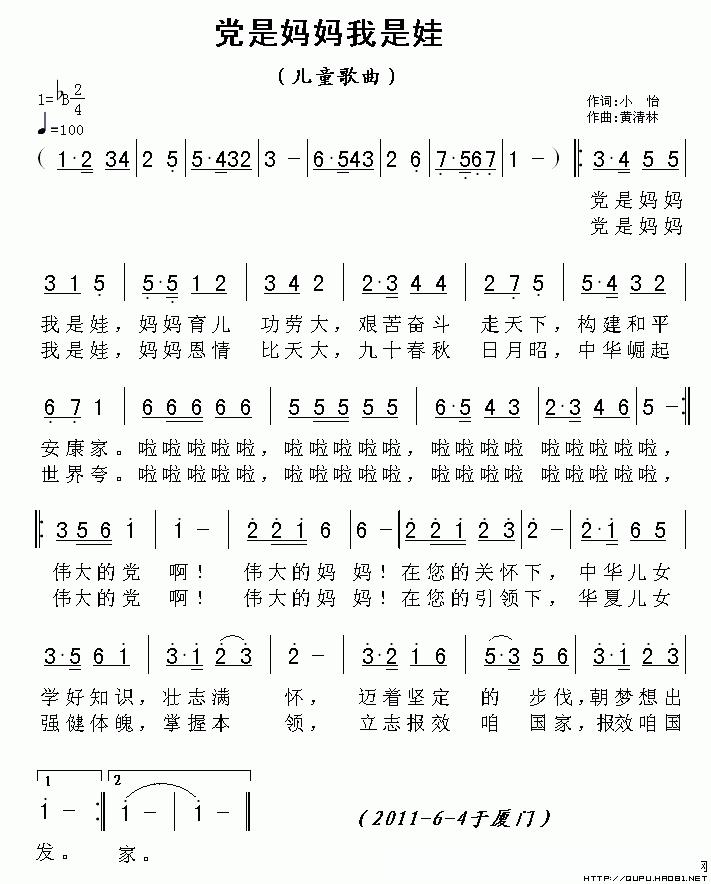 党是妈妈我是娃
（儿童歌曲）
1=♭B 2/4
♩=100
作词:小 怡
作曲:黄清林
( 1·2 34 | 2 5 | 5·432 | 3 － | 6·543 | 2 6 | 7·567 | 1 － ) ‖: 3·4 5 5
党是妈妈
党是妈妈
3 1 5 | 5·5 1 2 | 3 4 2 | 2·3 4 4 | 2 7 5 | 5·4 3 2
我是娃，妈妈育儿 功劳大，艰苦奋斗 走天下，构建和平
我是娃，妈妈恩情 比天大，九十春秋 日月昭，中华崛起
6 7 1 | 6 6 6 6 6 | 5 5 5 5 5 | 6·5 4 3 | 2·3 4 6 | 5 － :‖
安康家。啦啦啦啦啦，啦啦啦啦啦，啦啦啦啦 啦啦啦啦啦，
世界夸。啦啦啦啦啦，啦啦啦啦啦，啦啦啦啦 啦啦啦啦啦，
‖: 3 5 6 1 | 1 － | 2 2 1 6 | 6 － | 2 2 1 2 3 | 2 － | 2·1 6 5
伟大的党 啊！ 伟大的妈 妈！在您的关怀下， 中华儿女
伟大的党 啊！ 伟大的妈 妈！在您的引领下， 华夏儿女
3·5 6 1 | 3·1 2 3 | 2 － | 3·2 1 6 | 5·3 5 6 | 3·1 2 3
学好知识，壮志满 怀， 迈着坚定 的 步伐，朝梦想出
强健体魄，掌握本 领， 立志报效 咱 国家，报效咱国
1 2
1 － :‖ 1 － | 1 － ‖
(2011-6-4于厦门)
发。 家。
网
HTTP://QUPU.HAO81.NET